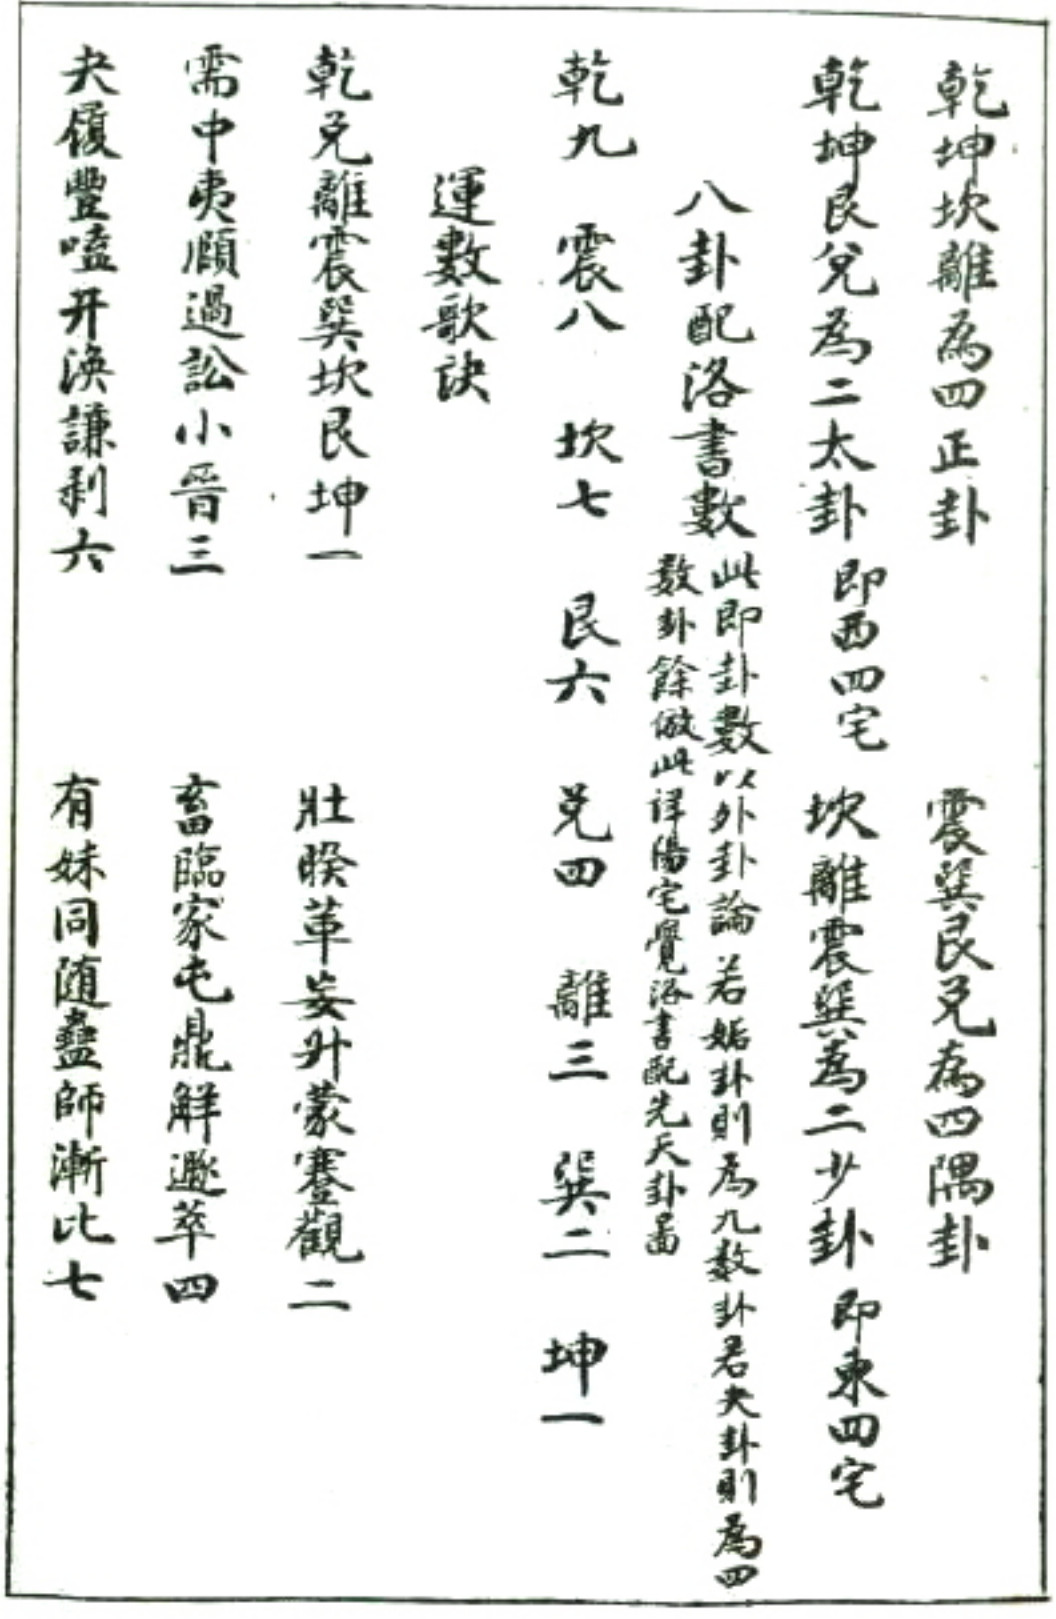 乾坤坎離為四正卦　震巽艮兌為四隅卦
乾坤艮兌為二太卦　即西四宅　坎離震巽為二少卦　即東四宅
八卦配洛書數
此即卦數以外卦論　若姤卦則為九數卦若夬卦則為四
数卦餘倣此详陽宅覺洛書配先天卦畐
乾九　震八　坎七　艮六　兌四　離三　巽二　坤一
運數歌訣
乾兌離震巽坎艮坤一　壯睽革妄升蒙蹇觀二
需中夷頤過訟小晉三　畜臨家屯鼎解遯萃四
夬履豐嗑井渙謙剥六　有妹同随蠱師漸比七